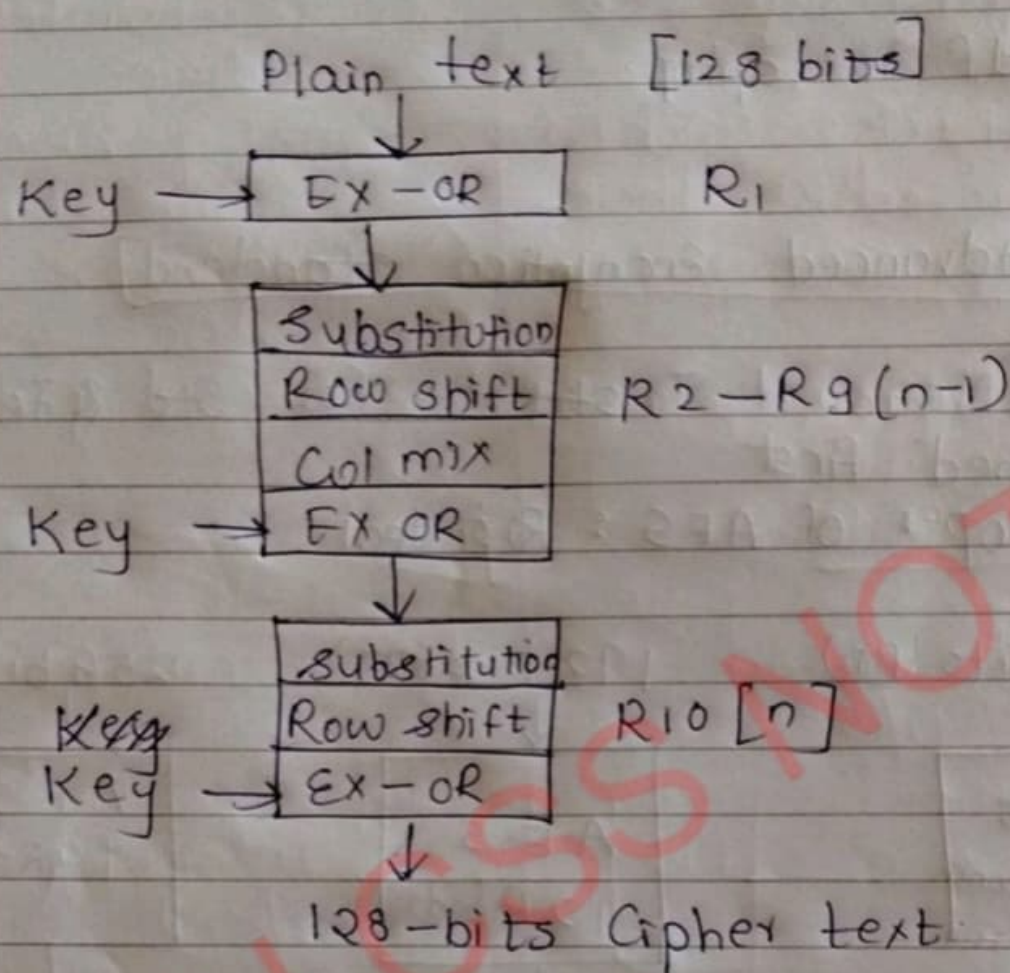 Plain text [128 bits]
Key EX-OR R1
Substitution
Row shift R2-R9(n-1)
Col mix
Key EX OR
substitution
Row shift R10 [n]
Key Ex-OR
128-bits Cipher text
CSS NOT